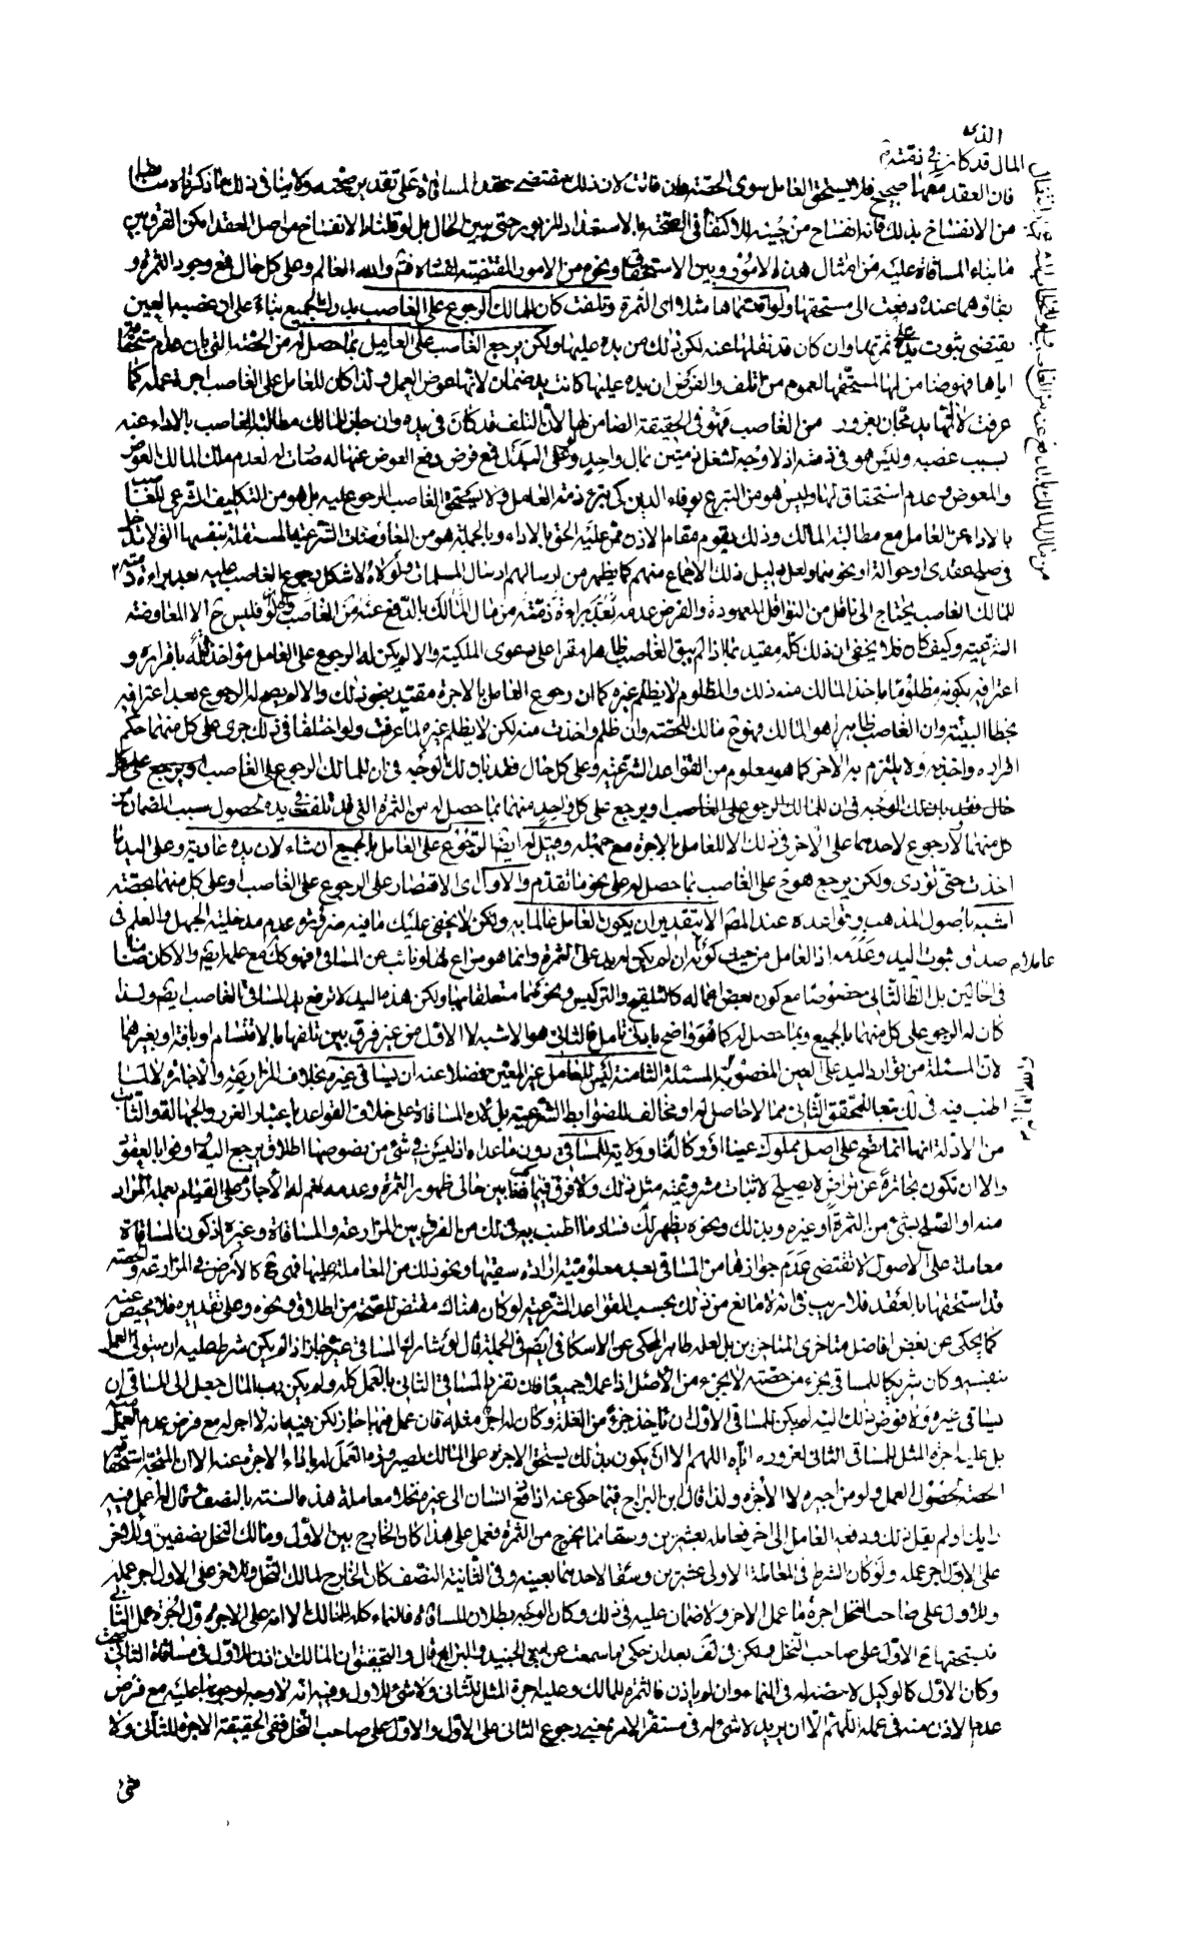 فان العقد معها صحيح فلا يستحق العامل سوى الحصة وان فاتت لان ذلك مقتضى عقد المساقاة على تقدير صحته ولا ينافي ذلك ما ذكرناه سابقا
من الانفساخ بذلك فانه انفساخ من حينه للاكتفاء في الصحة بالاستعداد المزبور حتى يبين الحال بل لو قلنا بالانفساخ من اصل العقد امكن الفرق بين
ما بناء المساقاة عليه من امثال هذه الامور وبين الاستحقاق ونحوه من الامور المقتضية لفساده فتم والله العالم وعلى كل حال فمع وجود الثمرة و
بقاؤهما عنده دفعت الى مستحقها ولو اقتسماها مثلا اى الثمرة وتلفت كان للمالك الرجوع على الغاصب بدرك الجميع بناء على ان غصبه العين
يقتضى ثبوت يد على ثمرتها وان كان قد نقلها عنه لكن ذلك من يده عليها ولكن يرجع الغاصب على العامل بما حصل له من الحصة التي بان عدم استحقاقه
اياها فهو ضامن لها لمستحقها لعموم من اتلف والفرض ان يده عليها كانت يد ضمان لانها عوض العمل ولذا كان للعامل على الغاصب اجرة عمله كما
عرفت لا انها يد مجان بغرور من الغاصب فهو في الحقيقة الضامن لها لان التلف قد كان في يده وان جاز للمالك مطالبة الغاصب بالاداء عنه
بسبب غصبه وليس هو في ذمته اذ لا وجه لشغل ذمتين بمال واحد على البدل فمع فرض دفع العوض عنها له صارت له لعدم ملك المالك العوض
والمعوض وعدم استحقاق لها وليس هو من التبرع بوفاء الدين كي تبرء ذمة العامل ولا يستحق الغاصب الرجوع عليه بل هو من التكليف الشرعي للغاصب
بالاداء عن العامل مع مطالبة المالك وذلك يقوم مقام الاذن ممن عليه الحق بالاداء وبالجملة هو من المعاوضات الشرعية المستقلة بنفسها التي لا تدخل
في صلح عقدى او حوالة او نحوهما ولعل دليل ذلك الاجماع منهم كما يظهر من ارسالهم ارسال المسلمات ولولاه لاشكل رجوع الغاصب عليه بعد براءة ذمته
للمالك الغاصب يحتاج الى ناقل من النواقل المعهودة والفرض عدمه بعد براءة ذمته من مال المالك بالدفع عنه من الغاصب فليس ح الا المعاوضة
الشرعية وكيف كان فلا يخفى ان ذلك كله مقيد بما اذا لم يبق الغاصب ظاهرا مقرا على دعوى الملكية والا لم يكن له الرجوع على العامل مؤاخذة له باقراره و
اعترافه بكونه مظلوما باخذ المالك منه ذلك والمظلوم لا يظلم غيره كما ان رجوع العامل بالاجرة مقيد بنحو ذلك والا لم يصح له الرجوع بعد اعترافه
بخطا البينة وان الغاصب ظاهرا هو المالك فهو ح مالك للحصة وان ظلم واخذت منه لكن لا يظلم غيره لما عرفت ولو اختلفا في ذلك جرى على كل منهما حكم
اقراره واخذ به ولا يلتزم به الاخر كما هو معلوم من القواعد الشرعية وعلى كل حال فقد بان لك الوجه في ان للمالك الرجوع على الغاصب او يرجع على كل
حال فقد بان لك الوجه في ان للمالك الرجوع على الغاصب او يرجع على كل واحد منهما بما حصل له من الثمرة التي قد تلفت في يده لحصول سبب الضمان من
كل منهما ولا رجوع لاحدهما على الاخر في ذلك الا للعامل بالاجرة مع جهله وقيل له ايضا الرجوع على العامل بالجميع ان شاء لان يده عادية وعلى اليد ما
اخذت حتى تؤدى ولكن يرجع هو ح على الغاصب بما حصل له على نحو ما تقدم والاول اى الاقتصار على الرجوع على الغاصب او على كل منهما بحصته
اشبه باصول المذهب وقواعده عند المصنف الا بتقدير ان يكون العامل عالما به ولكن لا يخفى عليك ما فيه ضرورة عدم مدخلية الجهل والعلم في
صدق ثبوت اليد وعدمه اذ العامل من حيث كونه ان لم يكن له يد على الثمرة وانما هو مراع لها ونائب عن المساقي فهو كك مع علمه ايضا والا كان ضامنا
في الحالين بل الظاهر الثاني خصوصا مع كون بعض اعماله كالتلقيح والتركيس ونحوهما متعلقا بها ولكن هذه اليد لا ترفع يد المساقي الغاصب ايضا ولذا
كان له الرجوع على كل منهما بالجميع وبما حصل له كما هو واضح بادنى تامل فالثاني هو الاشبه لا الاول من غير فرق بين تلفها بالاقتسام او بافة او بغيرهما
لان المسئلة من توارد اليد على العين المغصوبة المسئلة الثامنة ليس للعامل غير المعين فضلا عنه ان يساقي غيره بخلاف المزارعة والاجارة لا لما
اطنب فيه في لك تبعا للمحقق الثاني مما لا حاصل له او مخالف للضوابط الشرعية بل لان المساقاة على خلاف القواعد باعتبار الغرر والجهالة والثابت
من الادلة انها انما تصح على اصل مملوك عينا او وكالة او ولاية للمساقي دون ما عداه اذ ليس في شئ من نصوصها اطلاق يرجع اليه اوفوا بالعقود
والا ان تكون تجارة عن تراض لا يصلح لاثبات مشروعية مثل ذلك ولا فرق فيما قلنا بين حالى ظهور الثمرة وعدمه نعم له الايجار على القيام بعمله المراد
منه او الصلح بشئ من الثمرة او غيره وبذلك ونحوه يظهر لك فساد ما اطنب به في لك من الفرق بين المزارعة والمساقاة وغيره اذ كون المساقاة
معاملة على الاصول لا تقتضى عدم جوازها من المساقي بعد معلومية ارادة سقيها ونحو ذلك من المعاملة عليها فهي ح كالارض في المزارعة والحصة
قد استحقها بالعقد فلا ريب في انه لا مانع من ذلك بحسب القواعد الشرعية لو كان هناك مقتض للصحة من اطلاق ونحوه وعلى تقديره فلا محيص عنه
كما يحكى عن بعض افاضل متاخرى المتاخرين بل لعله ظاهر المحكى عن الاسكافي ايضا في الجملة قال لو شارك المساقي غيره جاز اذا لم يكن شرط عليه ان يتولى العمل
بنفسه وكان شريكا للمساقي بجزء من حصته لا بجزء من الاصل اذا عملا جميعا فان تفرد المساقي الثاني بالعمل كله ولم يكن رب المال جعل الى المساقي ان
يساقي غيره ولا فوض ذلك اليه لم يكن للمساقي الاول ان ياخذ جزء من الغلة وكان له اجر مثله فان عمل فيها جاز لكن فيه انه لا اجر له مع فرض عدم العمل
بل عليه اجرة المثل للمساقي الثاني لغروره اياه اللهم الا ان يكون بذلك يستحق الاجرة على المالك لصيرورة العمل له باداء الاجرة عنه الا ان المتجه استحقاقه
الحصة لحصول العمل ولو من اجيره لا الاجرة ولذا قال ابن البراج فيما حكى عنه اذا دفع انسان الى غيره نخلا ومعاملة هذه السنة بالنصف وقال له اعمل فيه
رايك او لم يقل ذلك ودفعه العامل الى اخر فعامله بعشرين وسقا مما يخرج من الثمرة فعمل على هذا كان الخارج بين الاول ومالك النخل نصفين وللاخر
على الاول اجر عمله ولو كان الشرط في المعاملة الاولى عشرين وسقا لاحدهما بعينه وفي الثانية النصف كان الخارج لمالك النخل وللاخر على الاول اجر عمله
وللاول على صاحب النخل اجرة ما عمل الاخر ولا ضمان عليه في ذلك وكان الوجه بطلان المساقاة فالنماء كله للمالك الا انه على الاجرة
فيستحقها ح الاول على صاحب النخل ولكن في لف بعد ان حكى ما سمعت عن ابني الجنيد والبراج قال والتحقيق ان المالك ان اذن للاول في مساقاة الثاني صحت
وكان الاول كالوكيل لا حصة له في النماء وان لم ياذن فالثمرة للمالك وعليه اجرة المثل للثاني ولا شئ للاول وفيه انه لا وجه لوجوبها عليه مع فرض
عدم الاذن منه في عمله اللهم الا ان يريد لا شئ له في مستقر الامر بمعنى رجوع الثاني على الاول والاول على صاحب النخل ففي الحقيقة الاجرة للثاني ولا